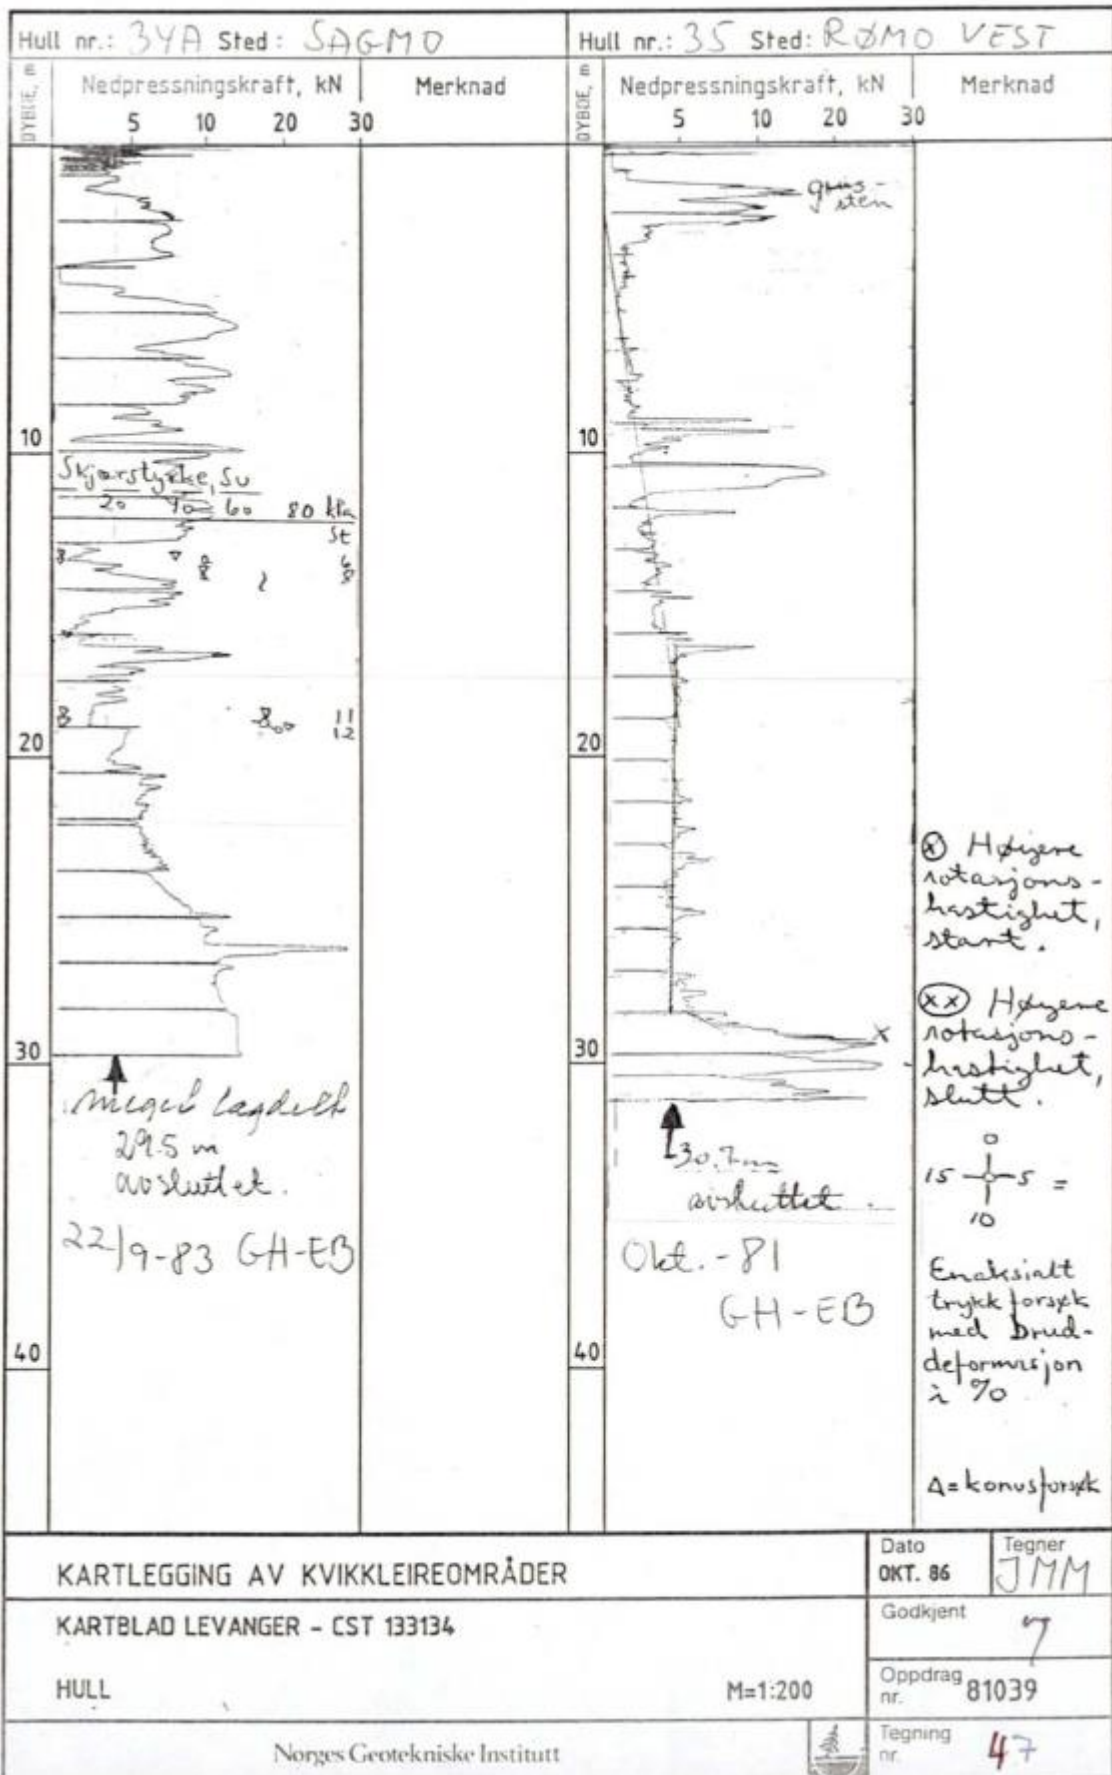 Hull nr.: 34A Sted: SAGMO
DYBDE, m
Nedpressningskraft, kN
Merknad
5 10 20 30
10
Skjærstyrke, Su
20 40 60 80 kPa
St
6
8
11
12
20
30
meget lagdelt
29.5 m
avsluttet.
22/9-83 GH-EB
40
Hull nr.: 35 Sted: RØMO VEST
DYBDE, m
Nedpressningskraft, kN
Merknad
5 10 20 30
grus-
sten
10
20
30
x
30.7 m
avsluttet.
Okt.-81
GH-EB
40
ⓧ Høigere
rotasjons-
hastighet,
start.
(xx) Høygere
rotasjons-
hastighet,
slutt.
0
15 5 =
10
Enaksialt
trykkforsøk
med brud-
deformasjon
i %
Δ=konusforsøk
KARTLEGGING AV KVIKKLEIREOMRÅDER
KARTBLAD LEVANGER - CST 133134
HULL M=1:200
Dato
OKT. 86
Tegner
JMM
Godkjent
Oppdrag
nr. 81039
Tegning
nr. 47
Norges Geotekniske Institutt